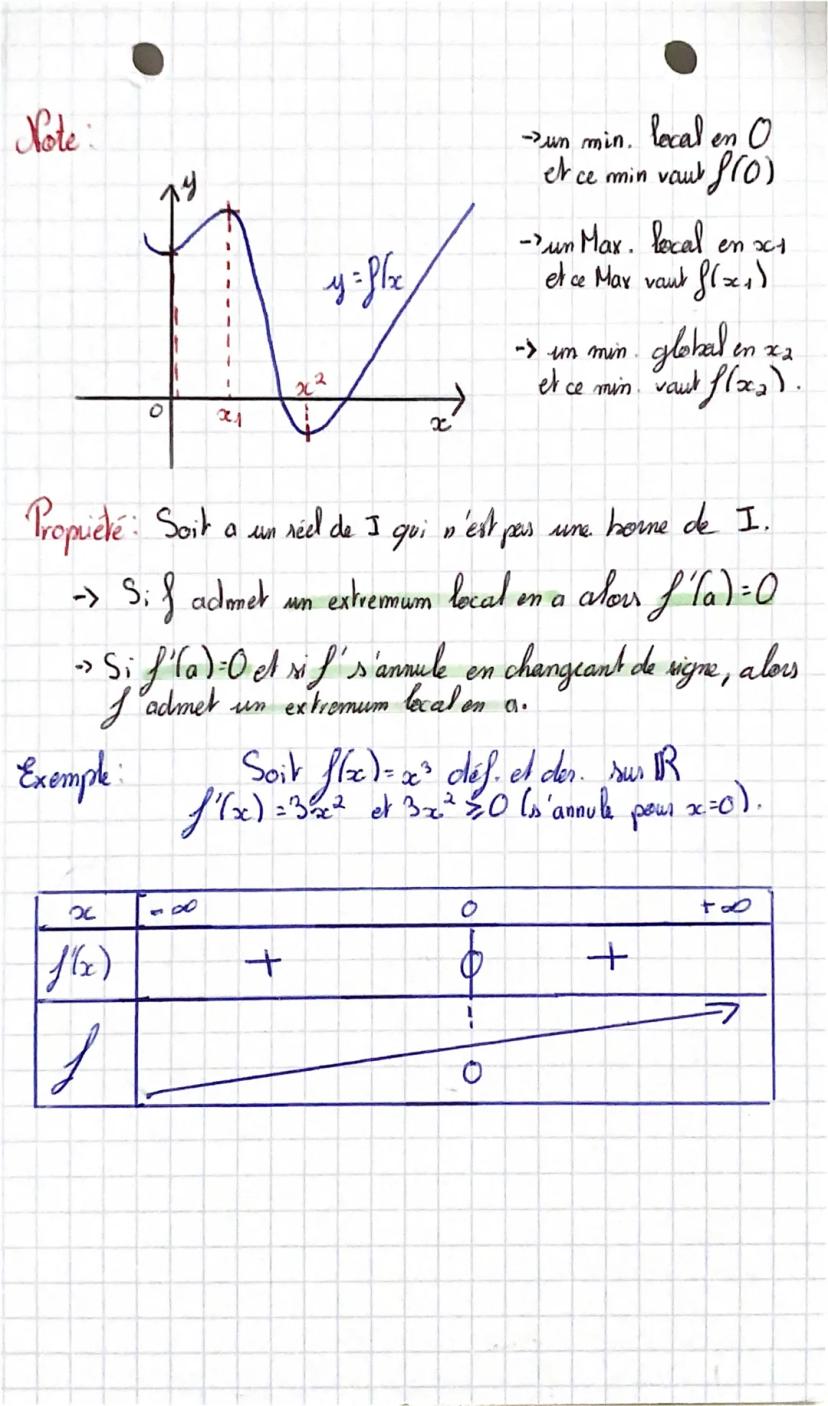 Note:
y
y=f(x
x²
0
x₁
x
->un min. local en 0
et ce min vaut f(0)
->un Max. local en x₁
et ce Max vaut f(x₁)
-> un min. global en x₂
et ce min. vaut f(x₂).
Propriété: Soit a un réel de I qui n'est pas une borne de I.
-> Si f admet un extremum local en a alors f'(a)=0
-> Si f'(a)=0 et si f' s'annule en changeant de signe, alors
f admet un extremum local en a.
Exemple: Soit f(x)=x³ déf. et der. sur ℝ
f'(x)=3x² et 3x²⩾0 (s'annule pour x=0).
x -∞ 0 +∞
f'(x) + 0 +
f 0